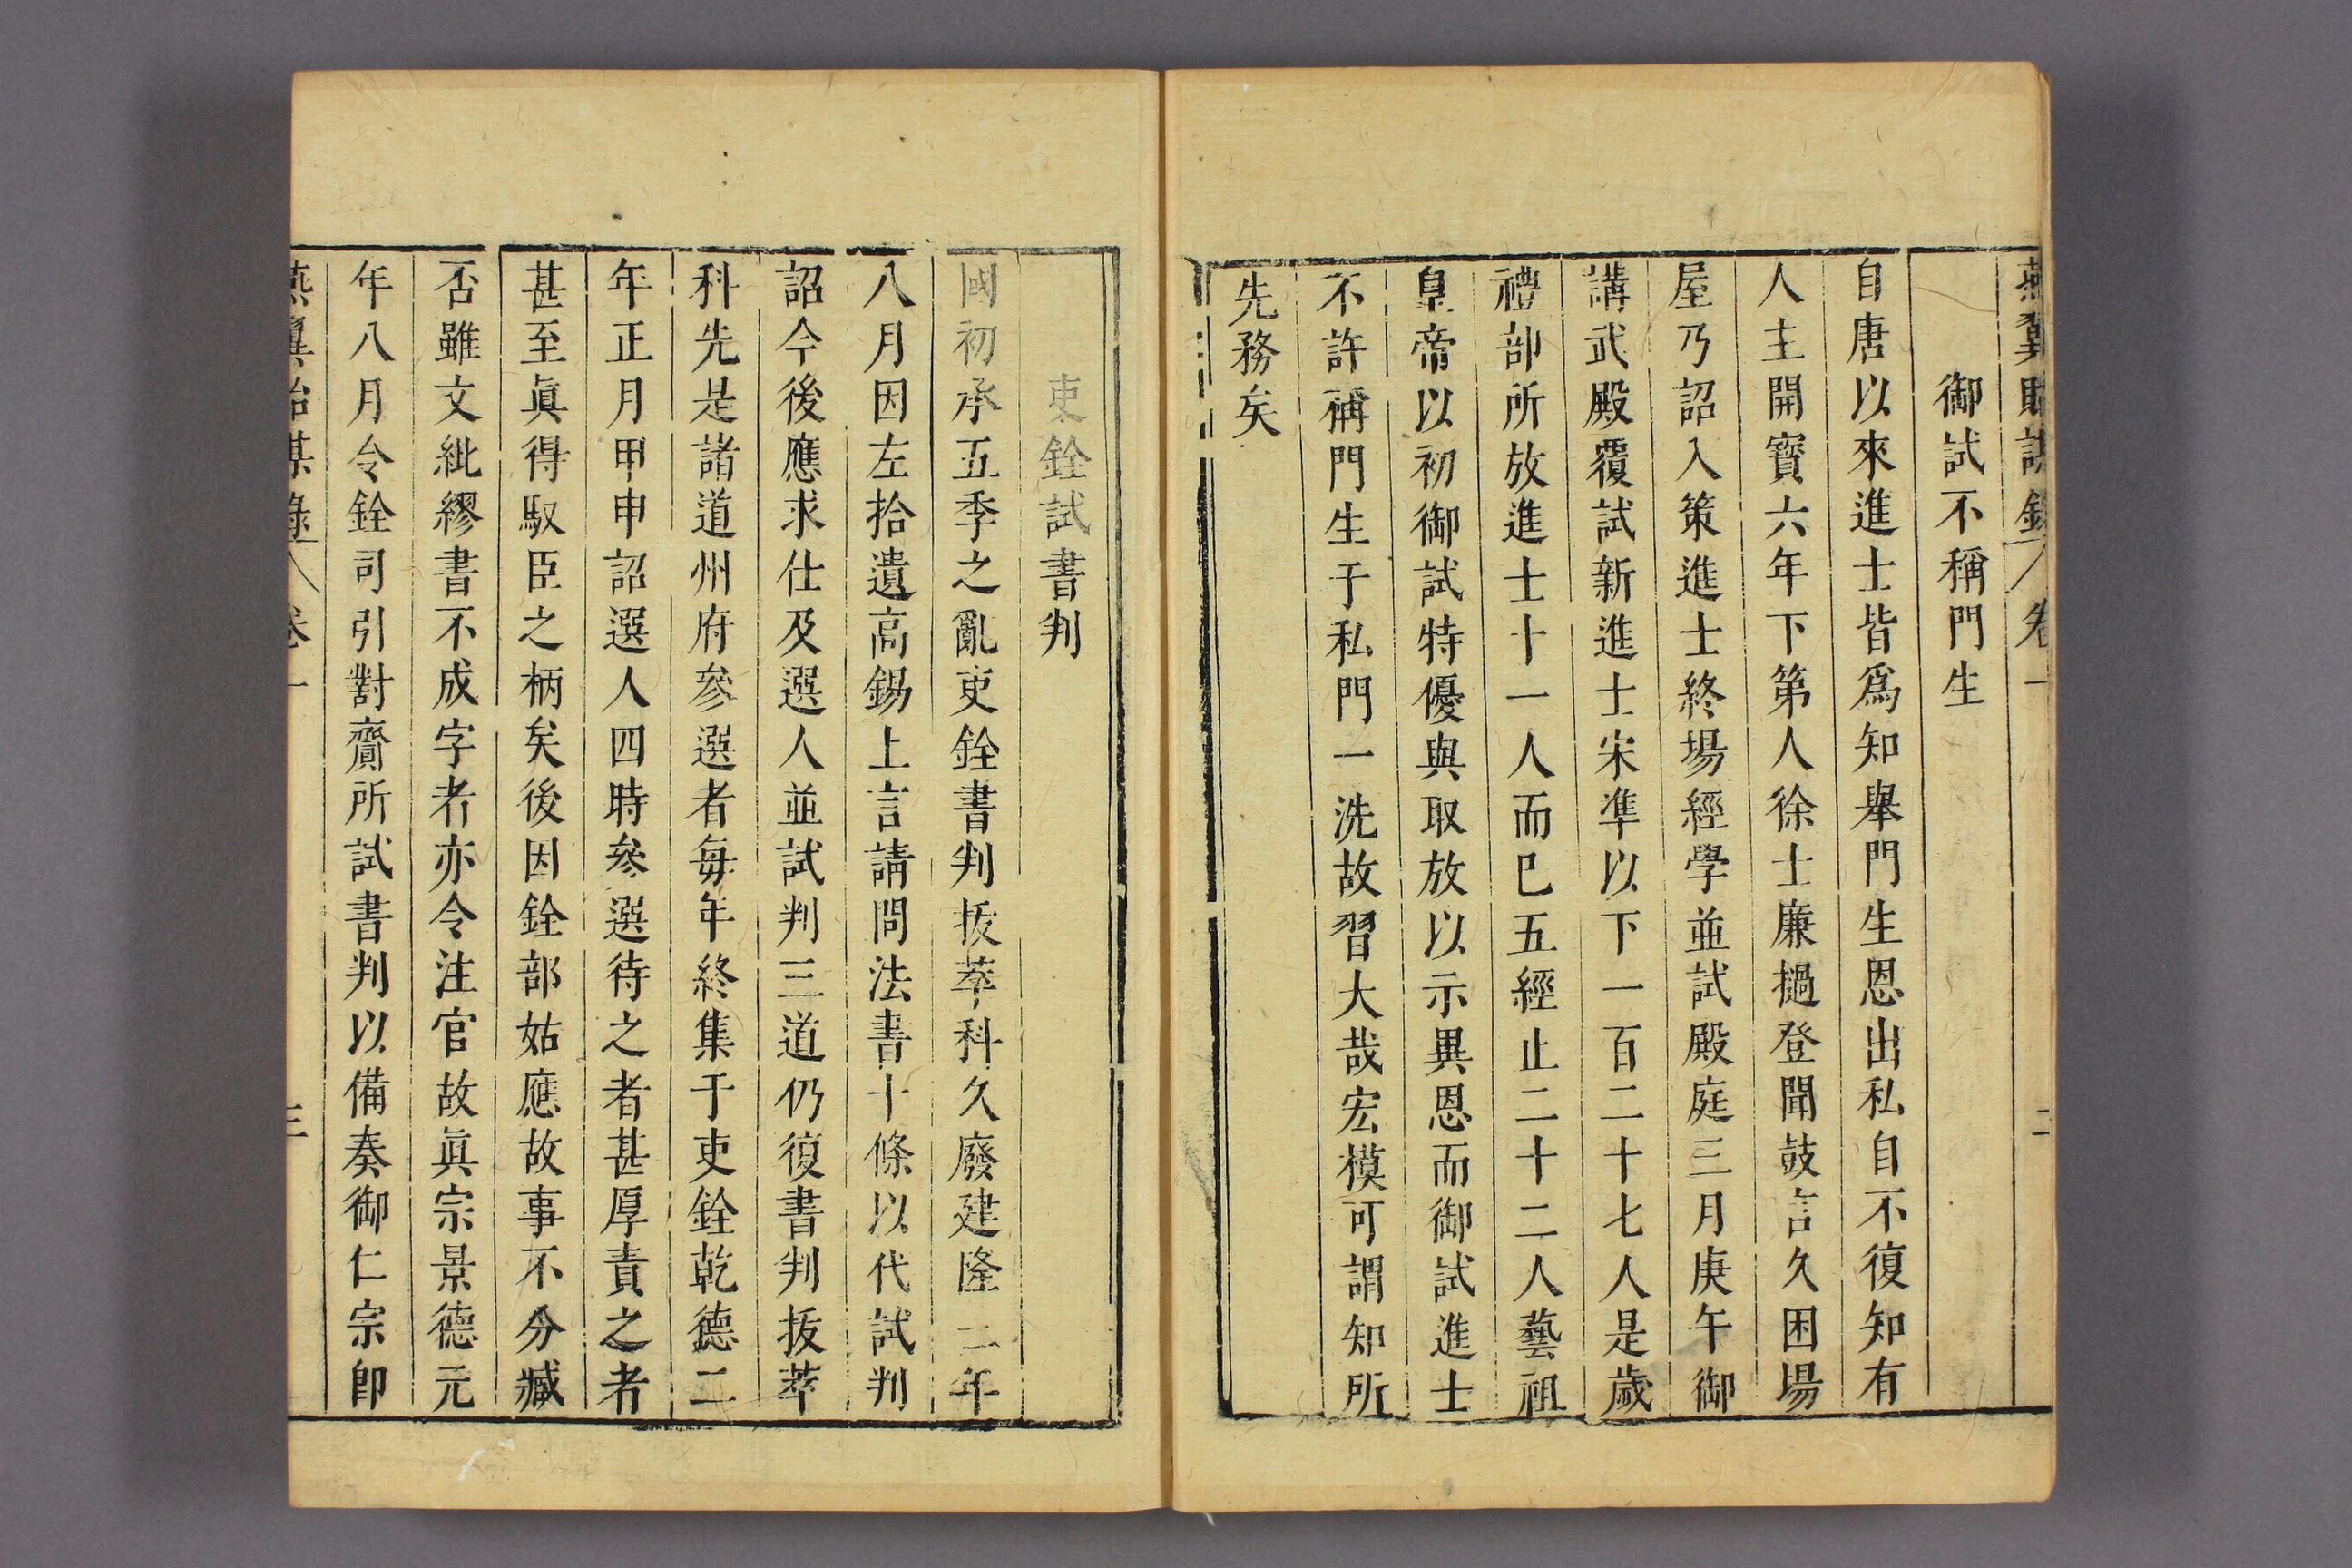 燕翼貽謀錄 卷一 二
御試不稱門生
自唐以來進士皆爲知舉門生恩出私自不復知有
人主開寶六年下第人徐士廉撾登聞鼓言久困場
屋乃詔入策進士終場經學並試殿庭三月庚午御
講武殿覆試新進士宋準以下一百二十七人是歲
禮部所放進士十一人而巳五經止二十二人藝祖
皇帝以初御試特優與取放以示異恩而御試進士
不許稱門生于私門一洗故習大哉宏模可謂知所
先務矣
吏銓試書判
國初承五季之亂吏銓書判拔萃科久廢建隆二年
八月因左拾遺高錫上言請問法書十條以代試判
詔今後應求仕及選人並試判三道仍復書判拔萃
科先是諸道州府參選者每年終集于吏銓乾德二
年正月甲申詔選人四時參選待之者甚厚責之者
甚至眞得馭臣之柄矣後因銓部姑應故事不分臧
否雖文紕繆書不成字者亦令注官故眞宗景德元
年八月令銓司引對齎所試書判以備奏御仁宗卽
燕翼貽謀錄 卷一 三